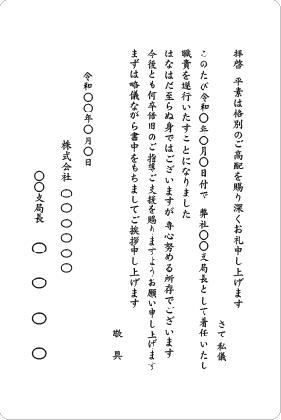 拝啓 平素は格別のご高配を賜り深くお礼申し上げます
さて私儀
このたび令和〇年〇月〇日付で 弊社〇〇支局長として着任いたし
職責を遂行いたすことになりました
はなはだ至らぬ身ではございますが 専心努める所存でございます
今後とも何卒倍旧のご指導ご支援を賜りますようお願い申し上げます
まずは略儀ながら書中をもちましてご挨拶申し上げます
敬具
令和〇〇年〇月〇日
株式会社 〇〇〇〇〇〇
〇〇支局長 〇 〇 〇 〇